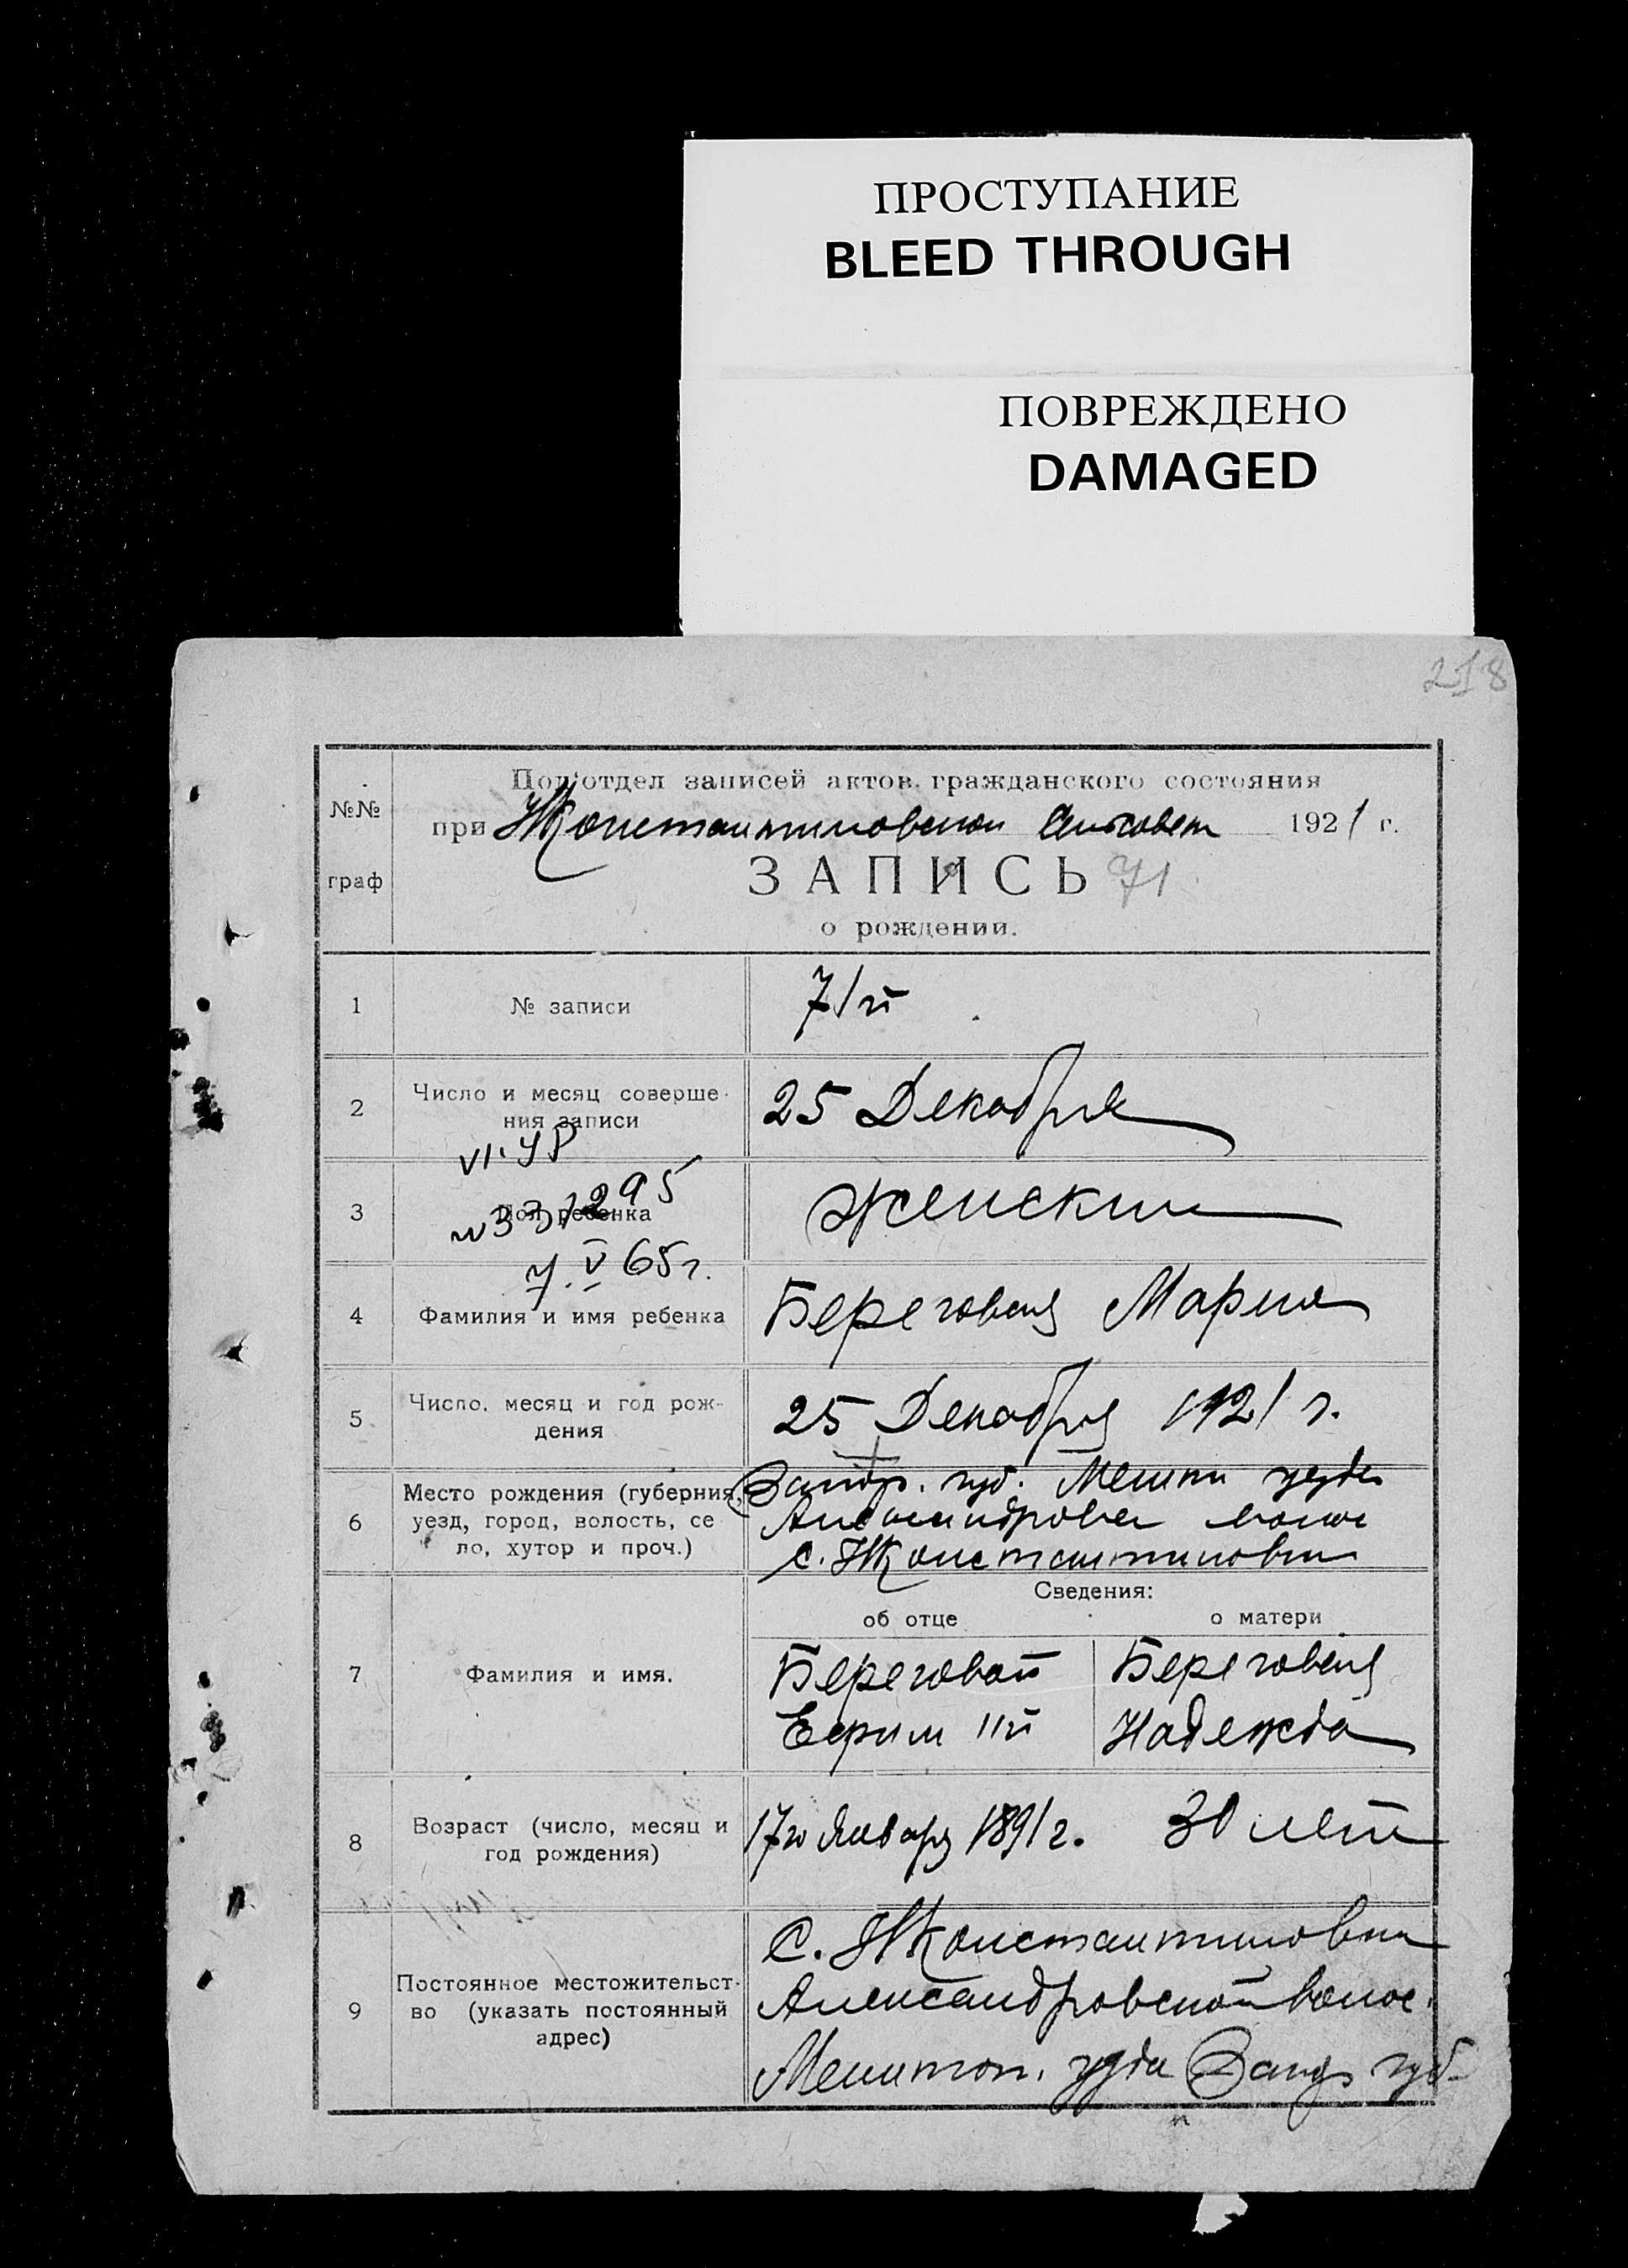 ПРОСТУПАНИЕ
BLEED THROUGH
ПОВРЕЖДЕНО
DAMAGED
218
№№
граф
Под'отдел записей актов гражданского состояния
при Константиновском 1921 г.
ЗАПИСЬ 71
о рождении.
1 № записи 71й
2 Число и месяц соверше-
ния записи
25 Декабря
VI. УР
№ 331295
7. V 65 г.
3 Пол ребенка Женский
4 Фамилия и имя ребенка Береговая Мария
5 Число, месяц и год рож-
дения
25 Декабря 1921 г.
6 Место рождения (губерния,
уезд, город, волость, се
ло, хутор и проч.)
Запор. губ. Мелит уезда
Александров волос
с. Константиновки
Сведения:
об отце о матери
7 Фамилия и имя.
Береговой Береговая
Ефим Надежда
8 Возраст (число, месяц и
год рождения)
17го Января 1891 г. 30 лет
9 Постоянное местожительст-
во (указать постоянный
адрес)
С. Константиновки
Александровской волос.
Мелитоп. уезда Запор губ.